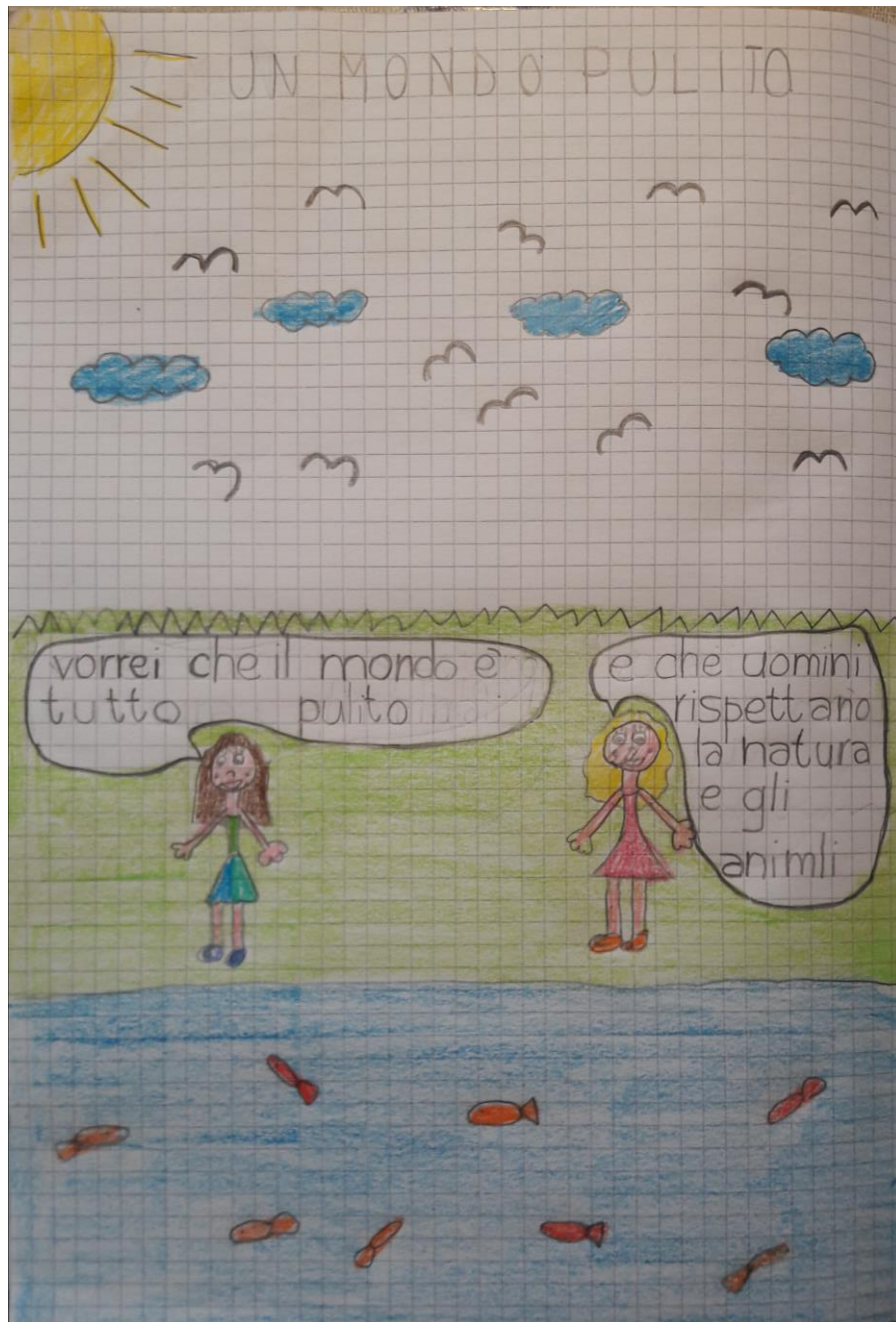 UN MONDO PULITO
vorrei che il mondo è
tutto pulito
e che uomini
rispettano
la natura
e gli
animli